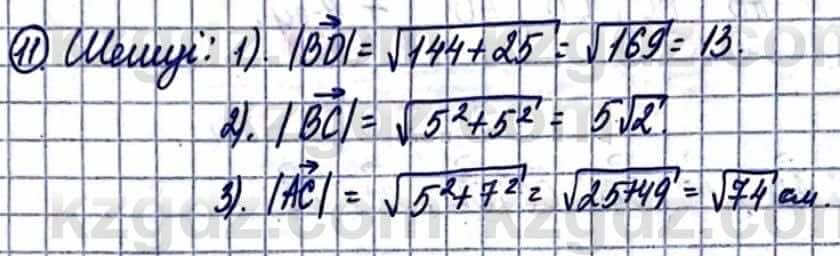 11. Шешуі: 1). |BD| = √144+25 = √169 = 13.
2). |BC| = √5²+5² = 5√2.
3). |AC| = √5²+7² = √25+49 = √74 см.
kzgdz.com